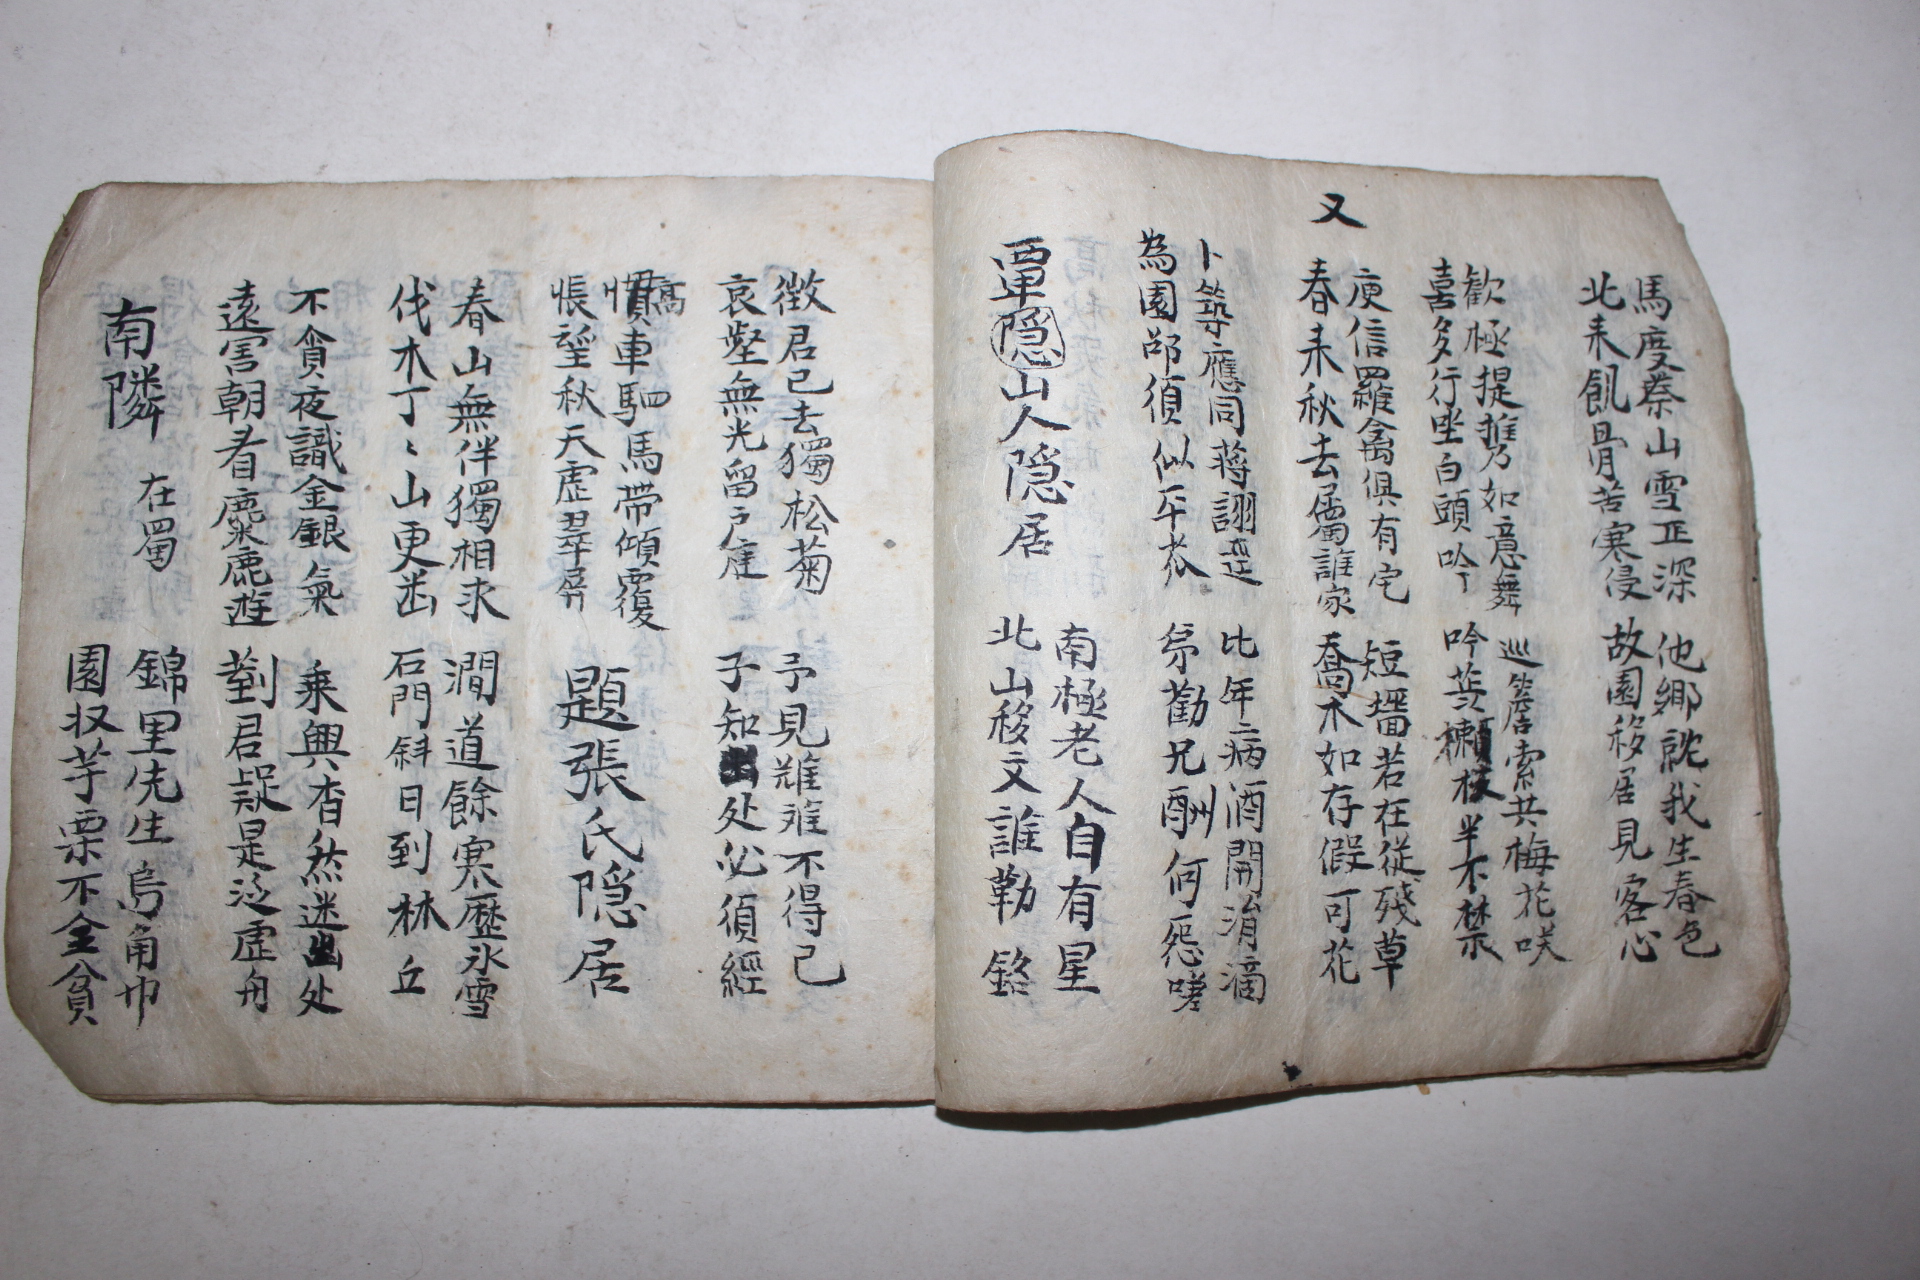 馬度蔡山雪正深
北来飢骨苦寒侵
他鄉就我生春色
故園移居見客心
歡極提携如意舞
喜多行坐白頭吟
巡簷索共梅花咲
吟蕊嬾枝半不禁
又
庾信羅含俱有宅
春来秋去屬誰家
短墻若在從殘草
喬木如存假可花
卜築應同蔣詡逕
為園卲須似平苽
比年病酒開涓滴
弟勸兄酬何怨嗟
覃隐山人隐居
南極老人自有星
北山移文誰勒銘
徴君已去獨松菊
哀壑無光留戶庭
予見雖难不得已
子知出处必須經
高車駟馬帶傾覆
悵望秋天虛翠屏
題張氏隐居
春山無伴獨相求
伐木丁〻山更幽
澗道餘寒歷氷雪
石門斜日到林丘
不貪夜識金銀氣
遠害朝看麋鹿遊
乘興杳然迷出处
對君疑是泛虛舟
南隣 在蜀
錦里先生烏角巾
園收芋栗不全貧